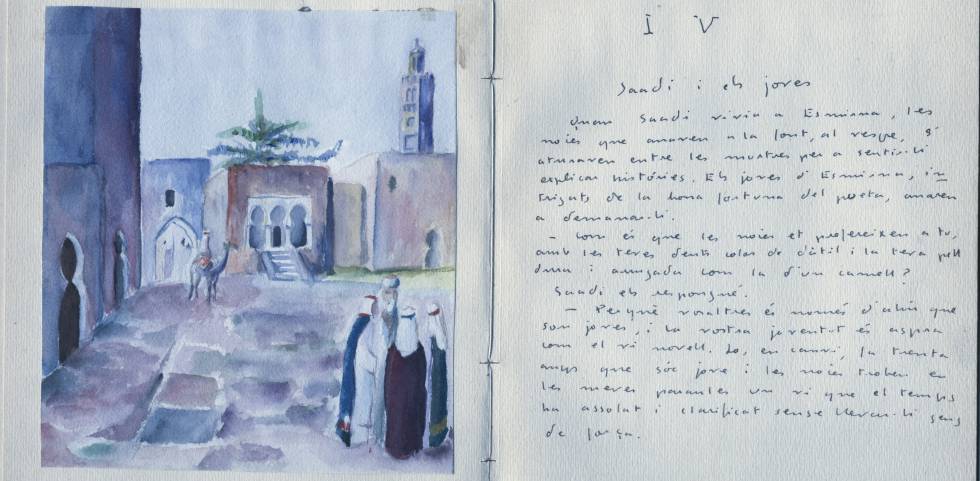 I V
Saadi i els joves
Quan Saadi vivia a Esmirna, les
noies que anaven a la font, al vespre, s'
aturaven entre les murtres per a sentir-li
explicar histories. Els joves d'Esmirna, in
trigats de la bona fortuna del poeta, anaven
a demanar-li.
– Com és que les noies et prefereixen a tu,
amb les teves dents color de dàtil i la teva pell
dura i arrugada com la d'un camell?
Saadi els respongué.
– Perquè vosaltres és només d'ahir que
sou joves, i la vostra joventut és aspra
com el vi novell. Jo, en canvi, fa trenta
anys que sóc jove i les noies troben en
les meves paraules un vi que el temps
ha assolat i clarificat sense llevar-li gens
de força.